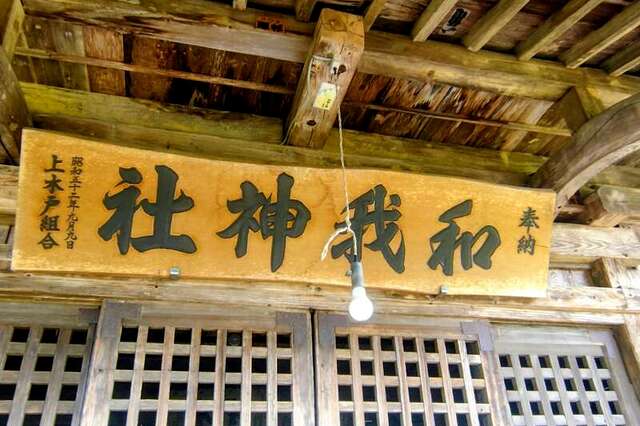 奉納
和我神社
昭和五十二年九月九日
上木戸組合